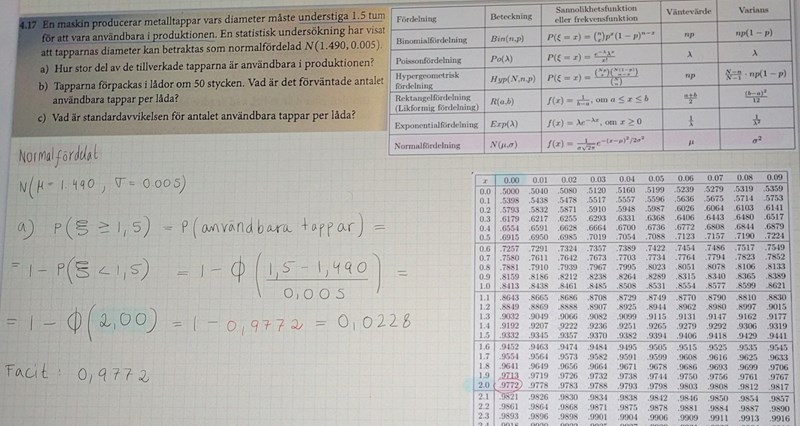 4.17 En maskin producerar metalltappar vars diameter måste understiga 1.5 tum
för att vara användbara i produktionen. En statistisk undersökning har visat
att tapparnas diameter kan betraktas som normalfördelad N(1.490, 0.005).
a) Hur stor del av de tillverkade tapparna är användbara i produktionen?
b) Tapparna förpackas i lådor om 50 stycken. Vad är det förväntade antalet
användbara tappar per låda?
c) Vad är standardavvikelsen för antalet användbara tappar per låda?
Fördelning Beteckning Sannolikhetsfunktion eller frekvensfunktion Väntevärde Varians
Binomialfördelning Bin(n,p) P(ξ = x) = (n x) p^x (1 − p)^{n−x} np np(1 − p)
Poissonfördelning Po(λ) P(ξ = x) = e^{−λ}λ^x / x! λ λ
Hypergeometrisk fördelning Hyp(N,n,p) P(ξ = x) = np N−n/N−1 · np(1 − p)
Rektangelfördelning (Likformig fördelning) R(a,b) f(x) = 1/b−a, om a ≤ x ≤ b a+b/2 (b−a)²/12
Exponentialfördelning Exp(λ) f(x) = λe^{−λx}, om x ≥ 0 1/λ 1/λ²
Normalfördelning N(μ,σ) f(x) = 1/σ√2π e^{−(x−μ)²/2σ²} μ σ²
Normalfördelat
N(μ = 1.490, σ = 0.005)
a) P(ξ ≥ 1,5) = P(användbara tappar) =
= 1 − P(ξ < 1,5) = 1 − Φ(1,5 − 1,490 / 0,005) =
= 1 − Φ(2,00) = 1 − 0,9772 = 0,0228
Facit: 0,9772
x 0.00 0.01 0.02 0.03 0.04 0.05 0.06 0.07 0.08 0.09
0.0 .5000 .5040 .5080 .5120 .5160 .5199 .5239 .5279 .5319 .5359
0.1 .5398 .5438 .5478 .5517 .5557 .5596 .5636 .5675 .5714 .5753
0.2 .5793 .5832 .5871 .5910 .5948 .5987 .6026 .6064 .6103 .6141
0.3 .6179 .6217 .6255 .6293 .6331 .6368 .6406 .6443 .6480 .6517
0.4 .6554 .6591 .6628 .6664 .6700 .6736 .6772 .6808 .6844 .6879
0.5 .6915 .6950 .6985 .7019 .7054 .7088 .7123 .7157 .7190 .7224
0.6 .7257 .7291 .7324 .7357 .7389 .7422 .7454 .7486 .7517 .7549
0.7 .7580 .7611 .7642 .7673 .7703 .7734 .7764 .7794 .7823 .7852
0.8 .7881 .7910 .7939 .7967 .7995 .8023 .8051 .8078 .8106 .8133
0.9 .8159 .8186 .8212 .8238 .8264 .8289 .8315 .8340 .8365 .8389
1.0 .8413 .8438 .8461 .8485 .8508 .8531 .8554 .8577 .8599 .8621
1.1 .8643 .8665 .8686 .8708 .8729 .8749 .8770 .8790 .8810 .8830
1.2 .8849 .8869 .8888 .8907 .8925 .8944 .8962 .8980 .8997 .9015
1.3 .9032 .9049 .9066 .9082 .9099 .9115 .9131 .9147 .9162 .9177
1.4 .9192 .9207 .9222 .9236 .9251 .9265 .9279 .9292 .9306 .9319
1.5 .9332 .9345 .9357 .9370 .9382 .9394 .9406 .9418 .9429 .9441
1.6 .9452 .9463 .9474 .9484 .9495 .9505 .9515 .9525 .9535 .9545
1.7 .9554 .9564 .9573 .9582 .9591 .9599 .9608 .9616 .9625 .9633
1.8 .9641 .9649 .9656 .9664 .9671 .9678 .9686 .9693 .9699 .9706
1.9 .9713 .9719 .9726 .9732 .9738 .9744 .9750 .9756 .9761 .9767
2.0 .9772 .9778 .9783 .9788 .9793 .9798 .9803 .9808 .9812 .9817
2.1 .9821 .9826 .9830 .9834 .9838 .9842 .9846 .9850 .9854 .9857
2.2 .9861 .9864 .9868 .9871 .9875 .9878 .9881 .9884 .9887 .9890
2.3 .9893 .9896 .9898 .9901 .9904 .9906 .9909 .9911 .9913 .9916